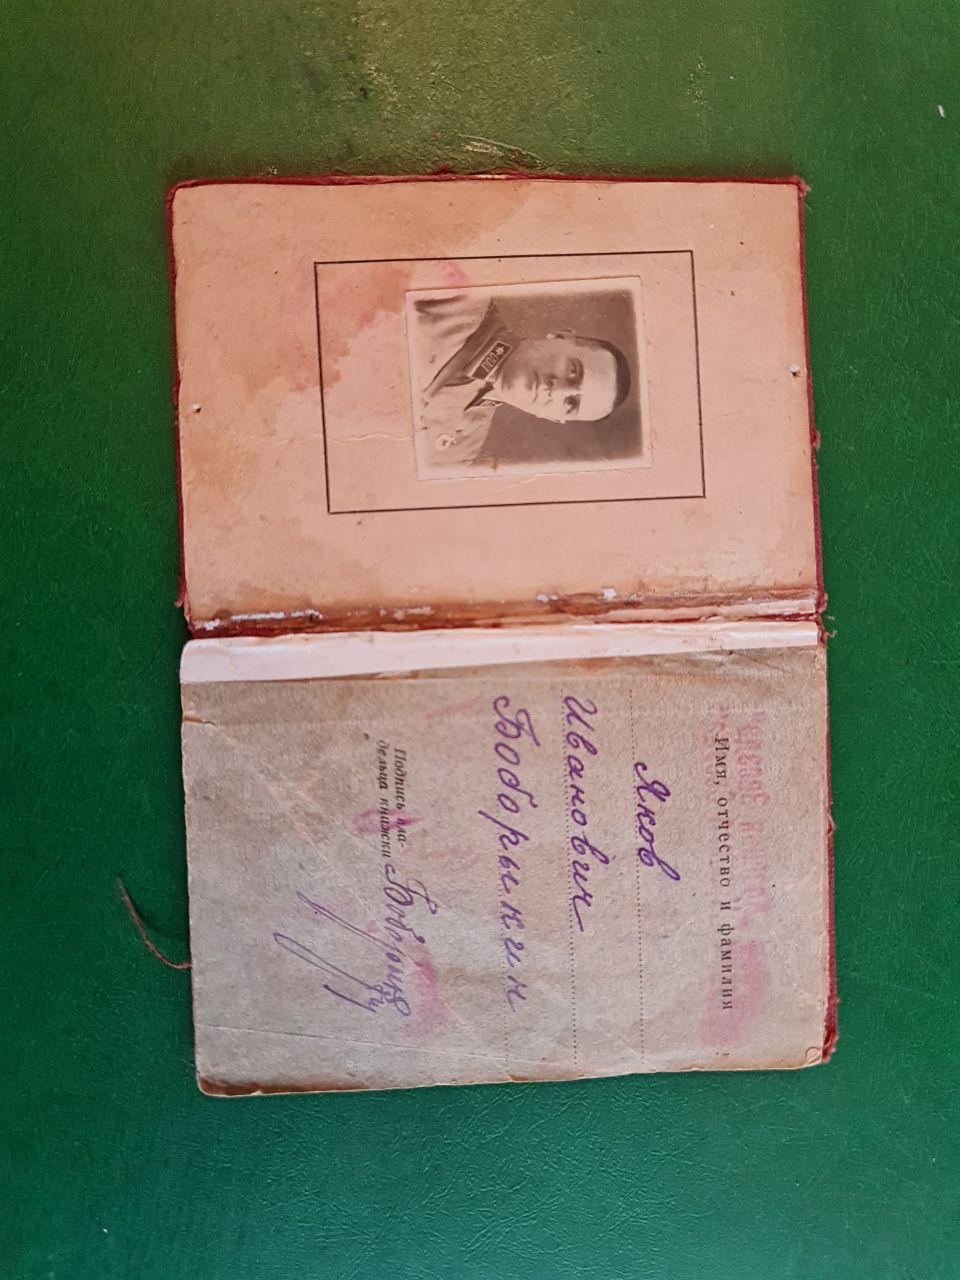 Имя, отчество и фамилия
Яков
Иванович
Боборыкин
Подпись вла-
дельца книжки